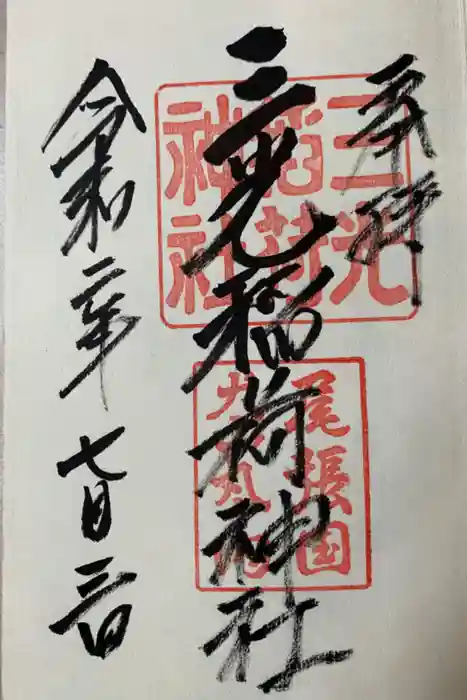 奉拝
三光稲荷神社
令和二年七月三日
三光
稲荷
神社
尾張国